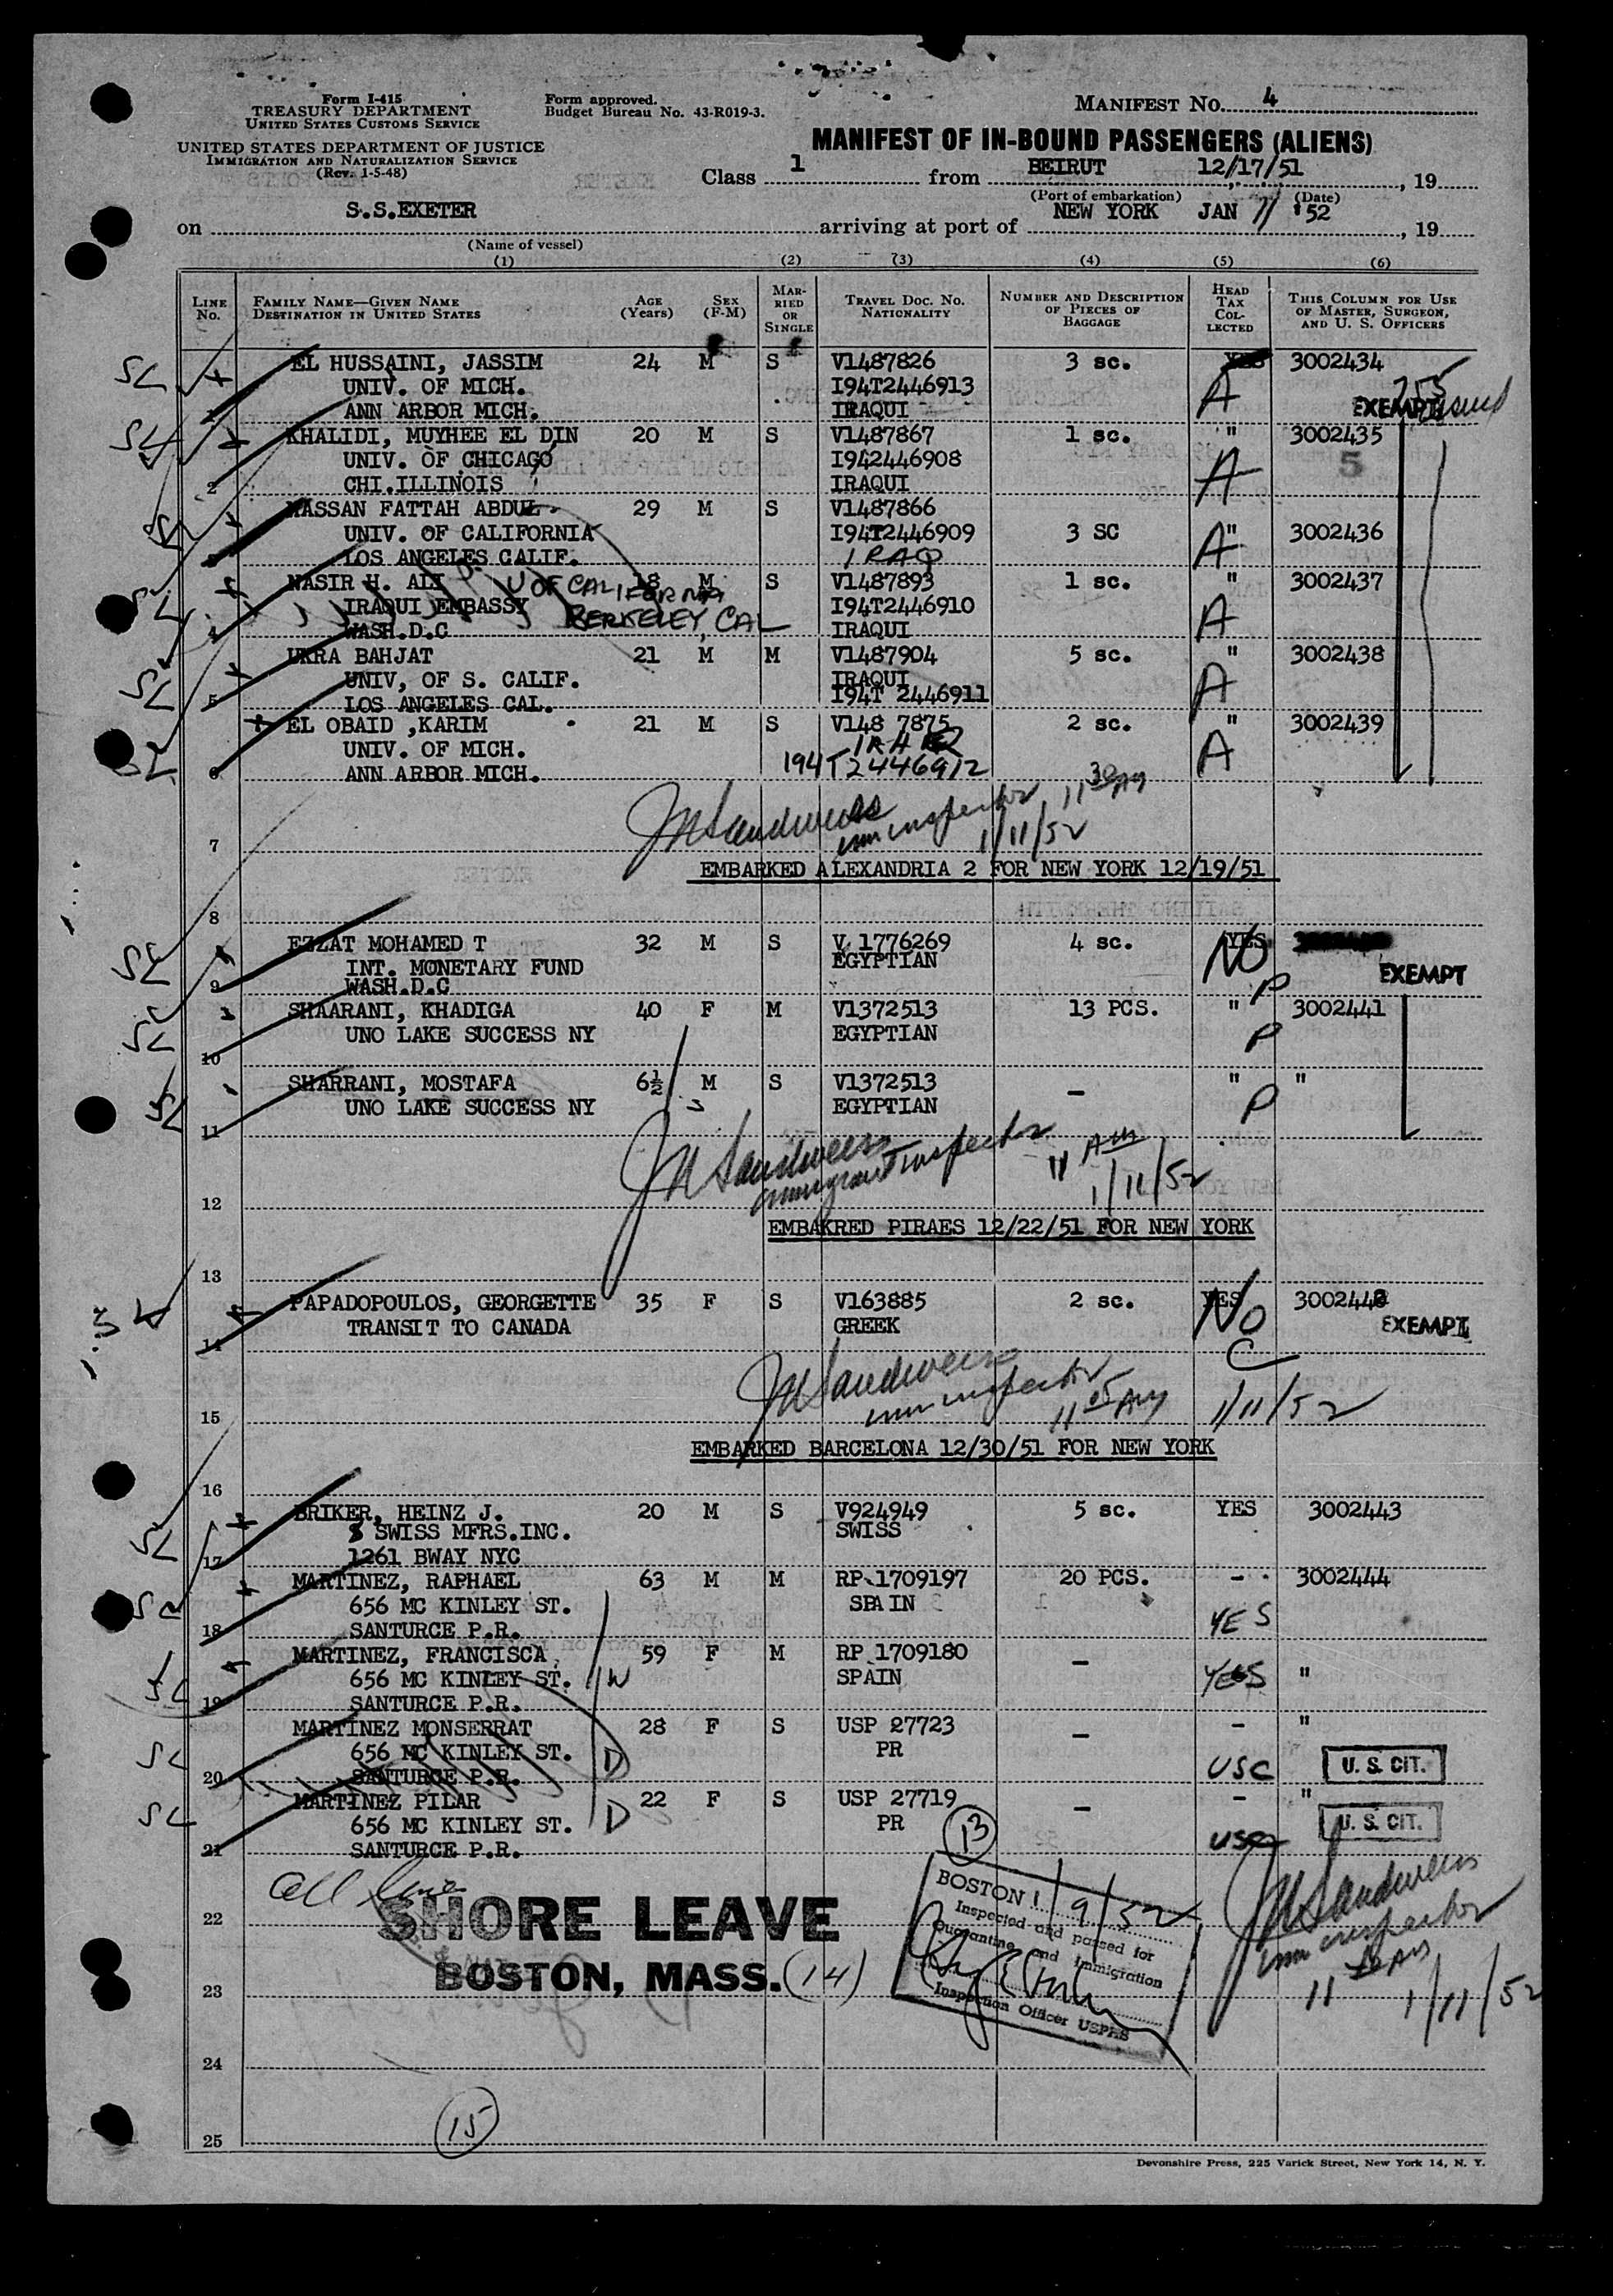 Form I-415
TREASURY DEPARTMENT
UNITED STATES CUSTOMS SERVICE
UNITED STATES DEPARTMENT OF JUSTICE
IMMIGRATION AND NATURALIZATION SERVICE
(Rev. 1-5-48)
Form approved.
Budget Bureau No. 43-R019-3.
MANIFEST NO. 4
MANIFEST OF IN-BOUND PASSENGERS (ALIENS)
Class 1 from BEIRUT 12/17/51, 19
(Port of embarkation) (Date)
on S.S.EXETER arriving at port of NEW YORK JAN 11 '52, 19
(Name of vessel)
(1) (2) (3) (4) (5) (6)
LINE No. FAMILY NAME—GIVEN NAME DESTINATION IN UNITED STATES AGE (Years) SEX (F-M) MARRIED OR SINGLE TRAVEL DOC. NO. NATIONALITY NUMBER AND DESCRIPTION OF PIECES OF BAGGAGE HEAD TAX COLLECTED THIS COLUMN FOR USE OF MASTER, SURGEON, AND U. S. OFFICERS
SL EL HUSSAINI, JASSIM 24 M S V1487826 3 sc. YES 3002434
UNIV. OF MICH. I94T2446913 A
1 ANN ARBOR MICH. IRAQUI EXEMPT
SL KHALIDI, MUYHEE EL DIN 20 M S V1487867 1 sc. " 3002435
UNIV. OF CHICAGO I942446908 A 5
2 CHI.ILLINOIS IRAQUI
SL HASSAN FATTAH ABDUL 29 M S V1487866
UNIV. OF CALIFORNIA I94T2446909 3 SC " 3002436
3 LOS ANGELES CALIF. IRAQ A
SL NASIR H. ALI U OF CALIFORNIA 18 M S V1487893 1 sc. " 3002437
IRAQUI EMBASSY BERKELEY, CAL I94T2446910 A
4 WASH.D.C IRAQUI
SL UKRA BAHJAT 21 M M V1487904 5 sc. " 3002438
UNIV, OF S. CALIF. IRAQUI A
5 LOS ANGELES CAL. I94T 2446911
SL EL OBAID ,KARIM 21 M S V148 7875 2 sc. " 3002439
UNIV. OF MICH. IRAQ A
6 ANN ARBOR MICH. 194T2446912
JM Sandweiss imm inspector 11 30 AM
7 1/11/52
EMBARKED ALEXANDRIA 2 FOR NEW YORK 12/19/51
8
SL EZZAT MOHAMED T 32 M S V 1776269 4 sc. YES NO
INT. MONETARY FUND EGYPTIAN P EXEMPT
9 WASH.D.C
SL SHAARANI, KHADIGA 40 F M V1372513 13 PCS. " 3002441
UNO LAKE SUCCESS NY EGYPTIAN P
10
SL SHARRANI, MOSTAFA 6½ M S V1372513 - " "
UNO LAKE SUCCESS NY EGYPTIAN P
11
JM Sandweiss immigrant inspector 11 AM
12 1/11/52
EMBAKRED PIRAES 12/22/51 FOR NEW YORK
13
PAPADOPOULOS, GEORGETTE 35 F S V163885 2 sc. YES NO 3002442
TRANSIT TO CANADA GREEK EXEMPT
14 C
JM Sandweiss imm inspector
15 11 05 AM 1/11/52
EMBARKED BARCELONA 12/30/51 FOR NEW YORK
16
SL BRIKER, HEINZ J. 20 M S V924949 5 sc. YES 3002443
SWISS MFRS.INC. SWISS
17 1261 BWAY NYC
MARTINEZ, RAPHAEL 63 M M RP 1709197 20 PCS. - 3002444
656 MC KINLEY ST. SPAIN YES
18 SANTURCE P.R.
SL MARTINEZ, FRANCISCA 59 F M RP 1709180 -
656 MC KINLEY ST. W SPAIN YES "
19 SANTURCE P.R.
SL MARTINEZ MONSERRAT 28 F S USP 27723 - - "
656 MC KINLEY ST. D PR USC U. S. CIT.
20 SANTURCE P.R.
SL MARTINEZ PILAR 22 F S USP 27719 - - "
656 MC KINLEY ST. D PR USC U. S. CIT.
21 SANTURCE P.R. (13)
All
22 SHORE LEAVE
23 BOSTON, MASS. (14)
BOSTON 1/9/52
Inspected and passed for
Quarantine and Immigration
Inspection Officer USPHS
JM Sandweiss
imm inspector
11 10 AM 1/11/52
24
(15)
25
Devonshire Press, 225 Varick Street, New York 14, N. Y.